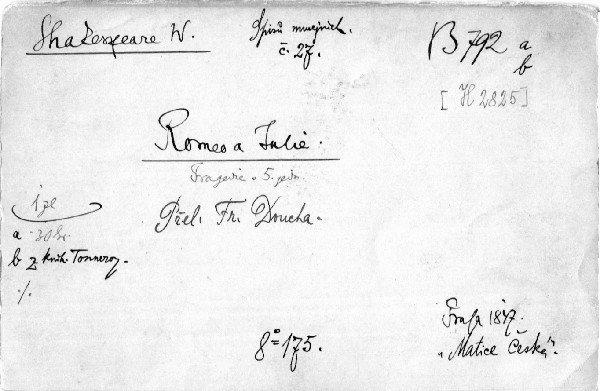 Shakespeare W.
Spisů musejních.
č. 27.
B 792 a
b
[H 2825]
Romeo a Julie.
Tragedie v 5 jedn.
Přel. Fr. Doucha.
a
b z knih.
./.
8° 175.
Praha 1847.
"Matice Česká".